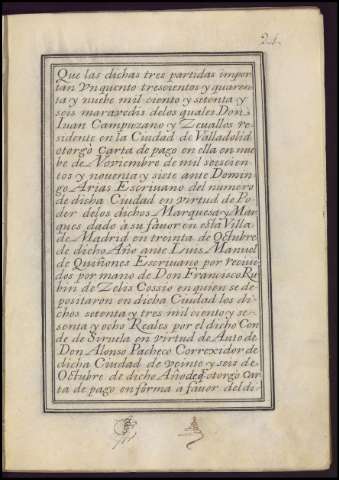 24
Que las dichas tres partidas impor-
tan Vn quento trescientos y quaren-
ta y nuebe mil ciento y setenta y
seis maravedis delos quales Don
Iuan Campuzano y Zeuallos re-
sidente en la Ciudad de Valladolid
otorgó Carta de pago en ella en nu-
be de Noviembre de mil seiscien-
tos y noventa y siete ante Domin-
go Arias Escriuano del numero
de dicha Ciudad en virtud de Po-
der delos dichos Marquesa y Mar-
ques dado à su fauor en esta Villa
de Madrid en treinta de Octubre
de dicho Año ante Luis Manuel
de Quiñones Escriuano por recui-
dos por mano de Don Francisco Ru-
bin de Zelis Cossio en quien se de-
positaron en dicha Ciudad los di-
chos setenta y tres mil ciento y se-
senta y ocho Reales por el dicho Con-
de de Siruela en virtud de Auto de
Don Alonso Pacheco Correxidor de
dicha Ciudad de veinte y seis de
Octubre de dicho Año de q̃ otorgo Car-
ta de pago en forma a fauor del di-